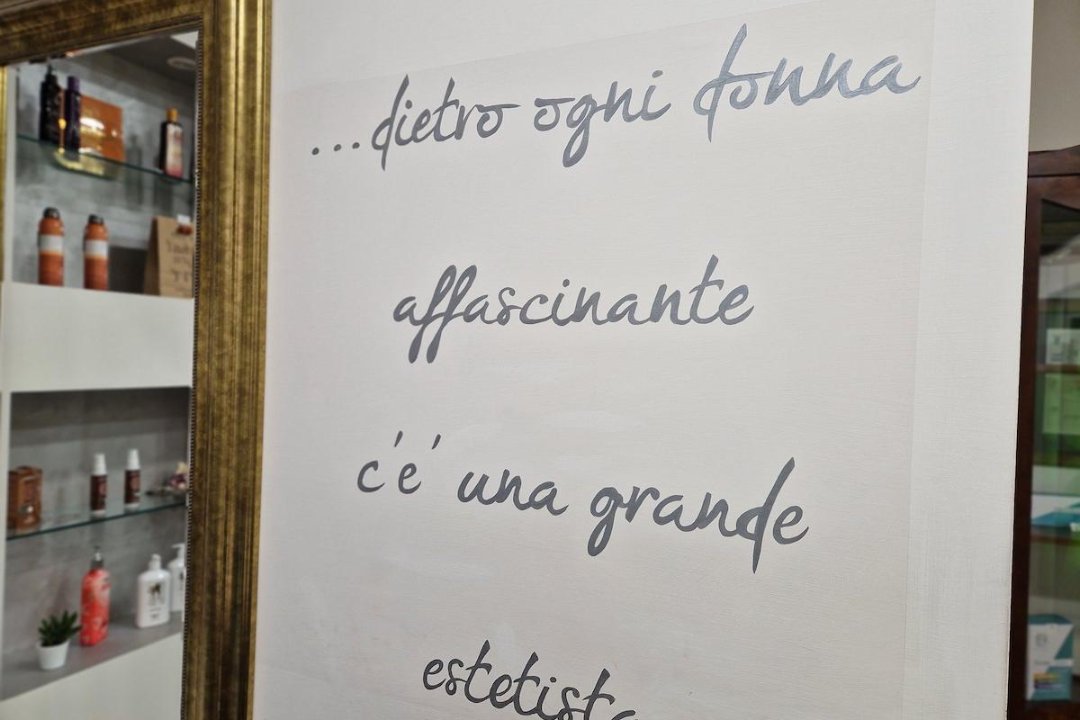 ...dietro ogni donna
affascinante
c'e' una grande
estetista